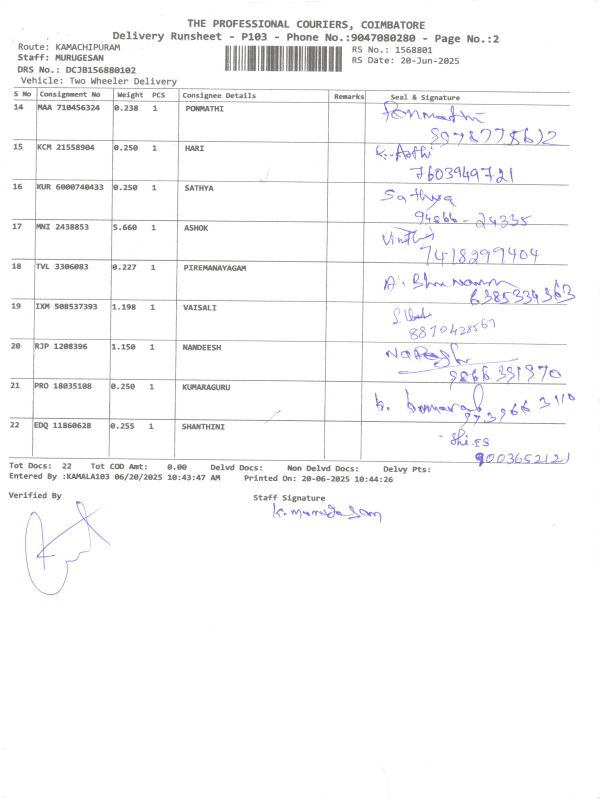 THE PROFESSIONAL COURIERS, COIMBATORE
Delivery Runsheet - P103 - Phone No.:9047080280 - Page No.:2
Route: KAMACHIPURAM RS No.: 1568801
Staff: MURUGESAN RS Date: 20-Jun-2025
DRS No.: DCJB156880102
Vehicle: Two Wheeler Delivery
S No Consignment No Weight PCS Consignee Details Remarks Seal & Signature
14 MAA 710456324 0.238 1 PONMATHI Ponmathi
15 KCM 21558904 0.250 1 HARI K. Aathi
7603949721
16 KUR 6000740433 0.250 1 SATHYA Sathya
94866-24335
17 MNI 2438853 5.660 1 ASHOK
7418299404
18 TVL 3306083 0.227 1 PIREMANAYAGAM
6385334363
19 IXM 508537393 1.198 1 VAISALI
8870428567
20 RJP 1208396 1.150 1 NANDEESH
9866391970
21 PRO 18035108 0.250 1 KUMARAGURU
22 EDQ 11860628 0.255 1 SHANTHINI
9003652121
Tot Docs: 22 Tot COD Amt: 0.00 Delvd Docs: Non Delvd Docs: Delvy Pts:
Entered By :KAMALA103 06/20/2025 10:43:47 AM Printed On: 20-06-2025 10:44:26
Verified By Staff Signature
K. Murugesan